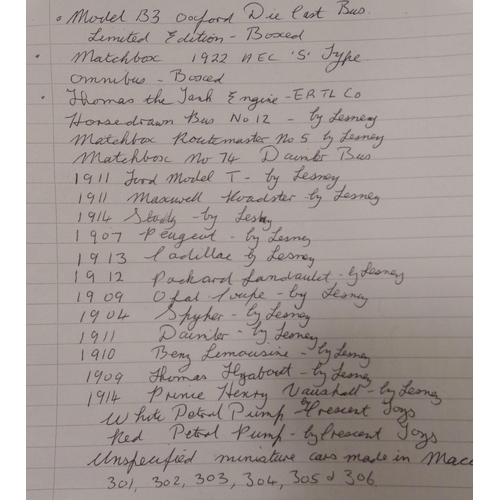 • Model B3 Oxford Die Cast Bus.
Limited Edition - Boxed
• Matchbox 1922 AEC 'S' Type
Omnibus - Boxed
• Thomas the Tank Engine - ERTL Co
Horsedrawn Bus No 12 - by Lesney
Matchbox Routemaster No 5 by Lesney
Matchbox No 74 Daimler Bus
1911 Ford Model T - by Lesney
1911 Maxwell Roadster - by Lesney
1914 - by Lesney
1907 Peugeot - by Lesney
1913 Cadillac by Lesney
1912 Packard Landaulet - by Lesney
1909 Opal Coupe - by Lesney
1904 Spyker - by Lesney
1911 Daimler - by Lesney
1910 Benz Limousine - by Lesney
1909 Thomas Flyabout - by Lesney
1914 Prince Henry Vauxhall - by Lesney
White Petrol Pump by Crescent Toys
Red Petrol Pump - by Crescent Toys
Unspecified miniature cars made in Macc
301, 302, 303, 304, 305 & 306